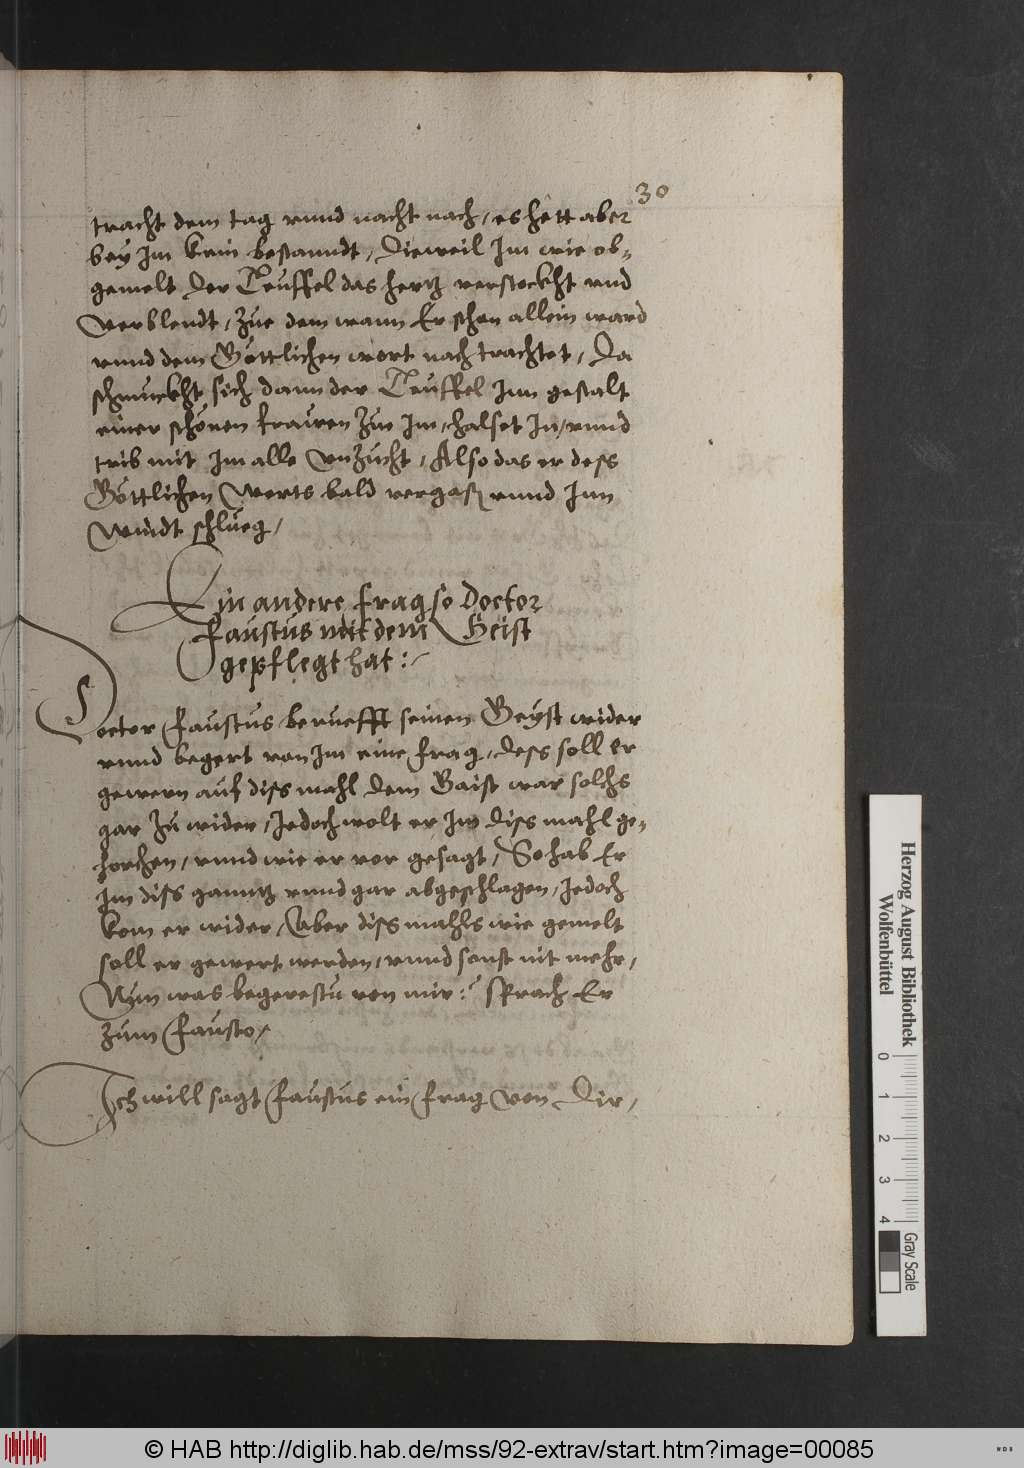 30
tracht dem tag vnnd nacht nach, es hett aber
bey jm kein bestanndt, Dieweil Im wie ob-
gemelt Der Teuffel das hertz verstockht vnd
Verblendt, Zue dem wann Er schon allein ward
vnnd dem Göttlichen wort nachtrachtet, Da
schmuckht sich dann der Teuffel Inn gestalt
einer schönen frawen Zue Im, halset In, vnnd
trib mit Im alle Vnzücht, Also das er dess
Göttlichen Worts bald vergaß vnnd Inn
Windt schlueg,
Ein andere frag so Doctor
Faustus mit dem Geist
gepflegt hat:
Doctor Faustus berueft seinen Geyst wider
vnnd begert von Im eine frag, Dess soll Er
gewern auf diss mahl Dem Gaist war solchs
gar Zu wider, Iedoch wolt er Im diss mahl ge-
horchen, vnnd wie er vor gesagt, So hab Er
Im diss ganntz vnnd gar abgeschlagen, Iedoch
kom er wider, Aber diss mahls wie gemelt
soll er gewert werden, vnnd sonst nit mehr,
Nun was begerestu von mir:? sprach Er
zum Fausto,
Ich will sagt Faustus ein frag von Dir,
Herzog August Bibliothek
Wolfenbüttel
0 1 2 3 4
Gray Scale
© HAB http://diglib.hab.de/mss/92-extrav/start.htm?image=00085